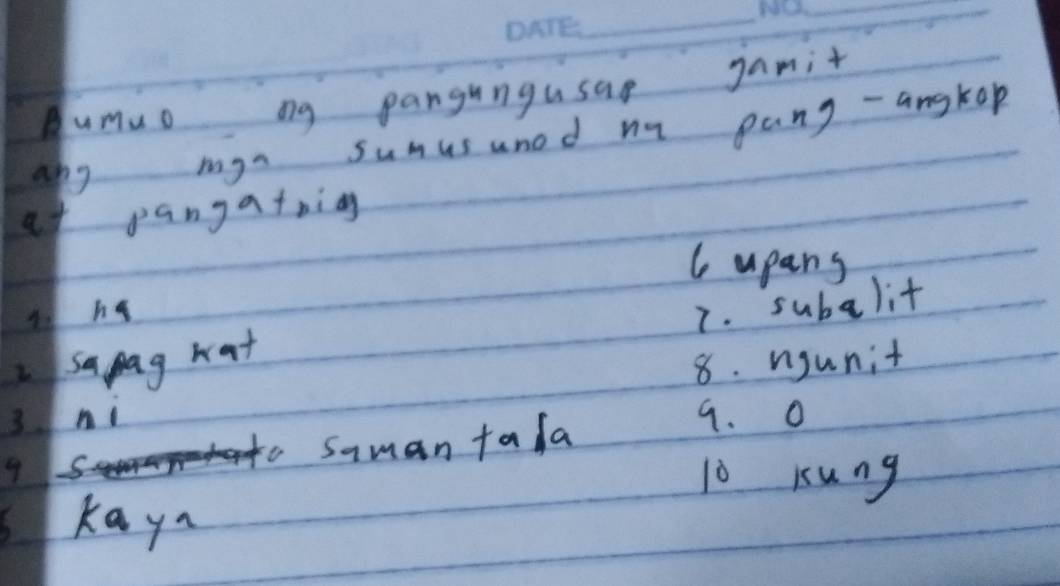 DATE: NO.
Bumuo ng pangungusap gamit
ang mga sumusunod na pang-angkop
at pangatnig
1. na
2 sapagkat
3. ni
4 samantala
5 kaya
6 upang
7. subalit
8. ngunit
9. o
10 kung